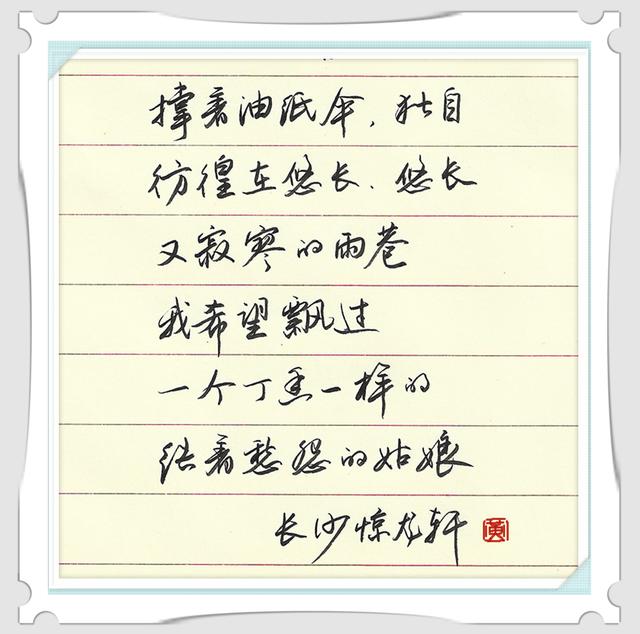 撑着油纸伞，独自
彷徨在悠长、悠长
又寂寥的雨巷
我希望飘过
一个丁香一样的
结着愁怨的姑娘
长沙惊龙轩 黄